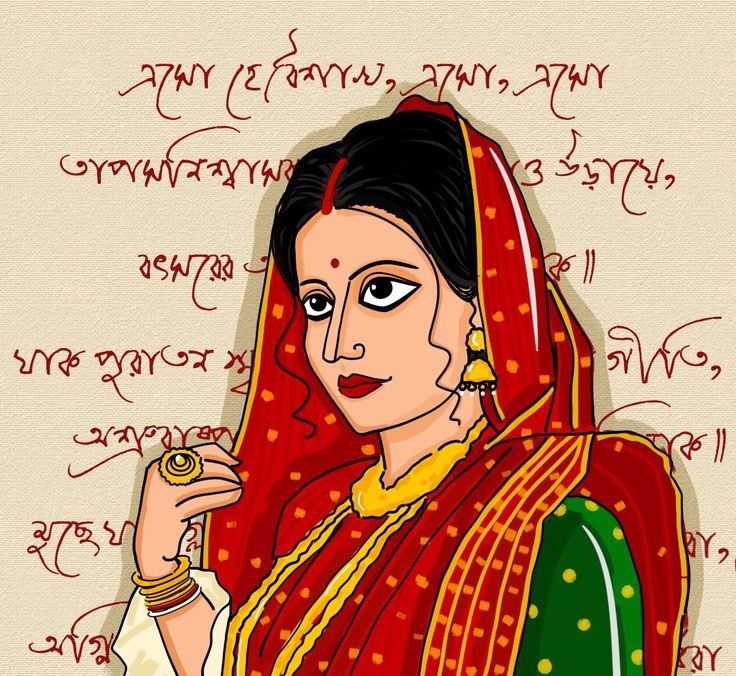 এসো হে বৈশাখ, এসো, এসো
তাপসনিশ্বাসব ও উড়ায়ে,
বৎসরের ক॥
যাক পুরাতন গীতি,
অশ্রুবাষ্প াক॥
মুছে যা রা,
অগ্নি রা